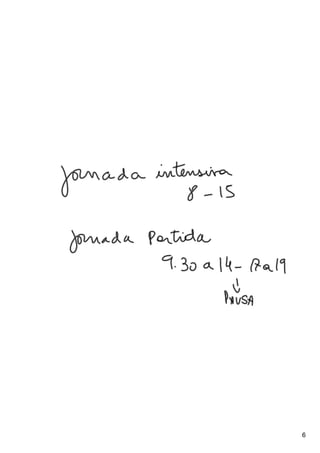 Jornada intensiva
8 - 15
Jornada Partida
9.30 a 14 - 17 a 19
↓
PAUSA
6